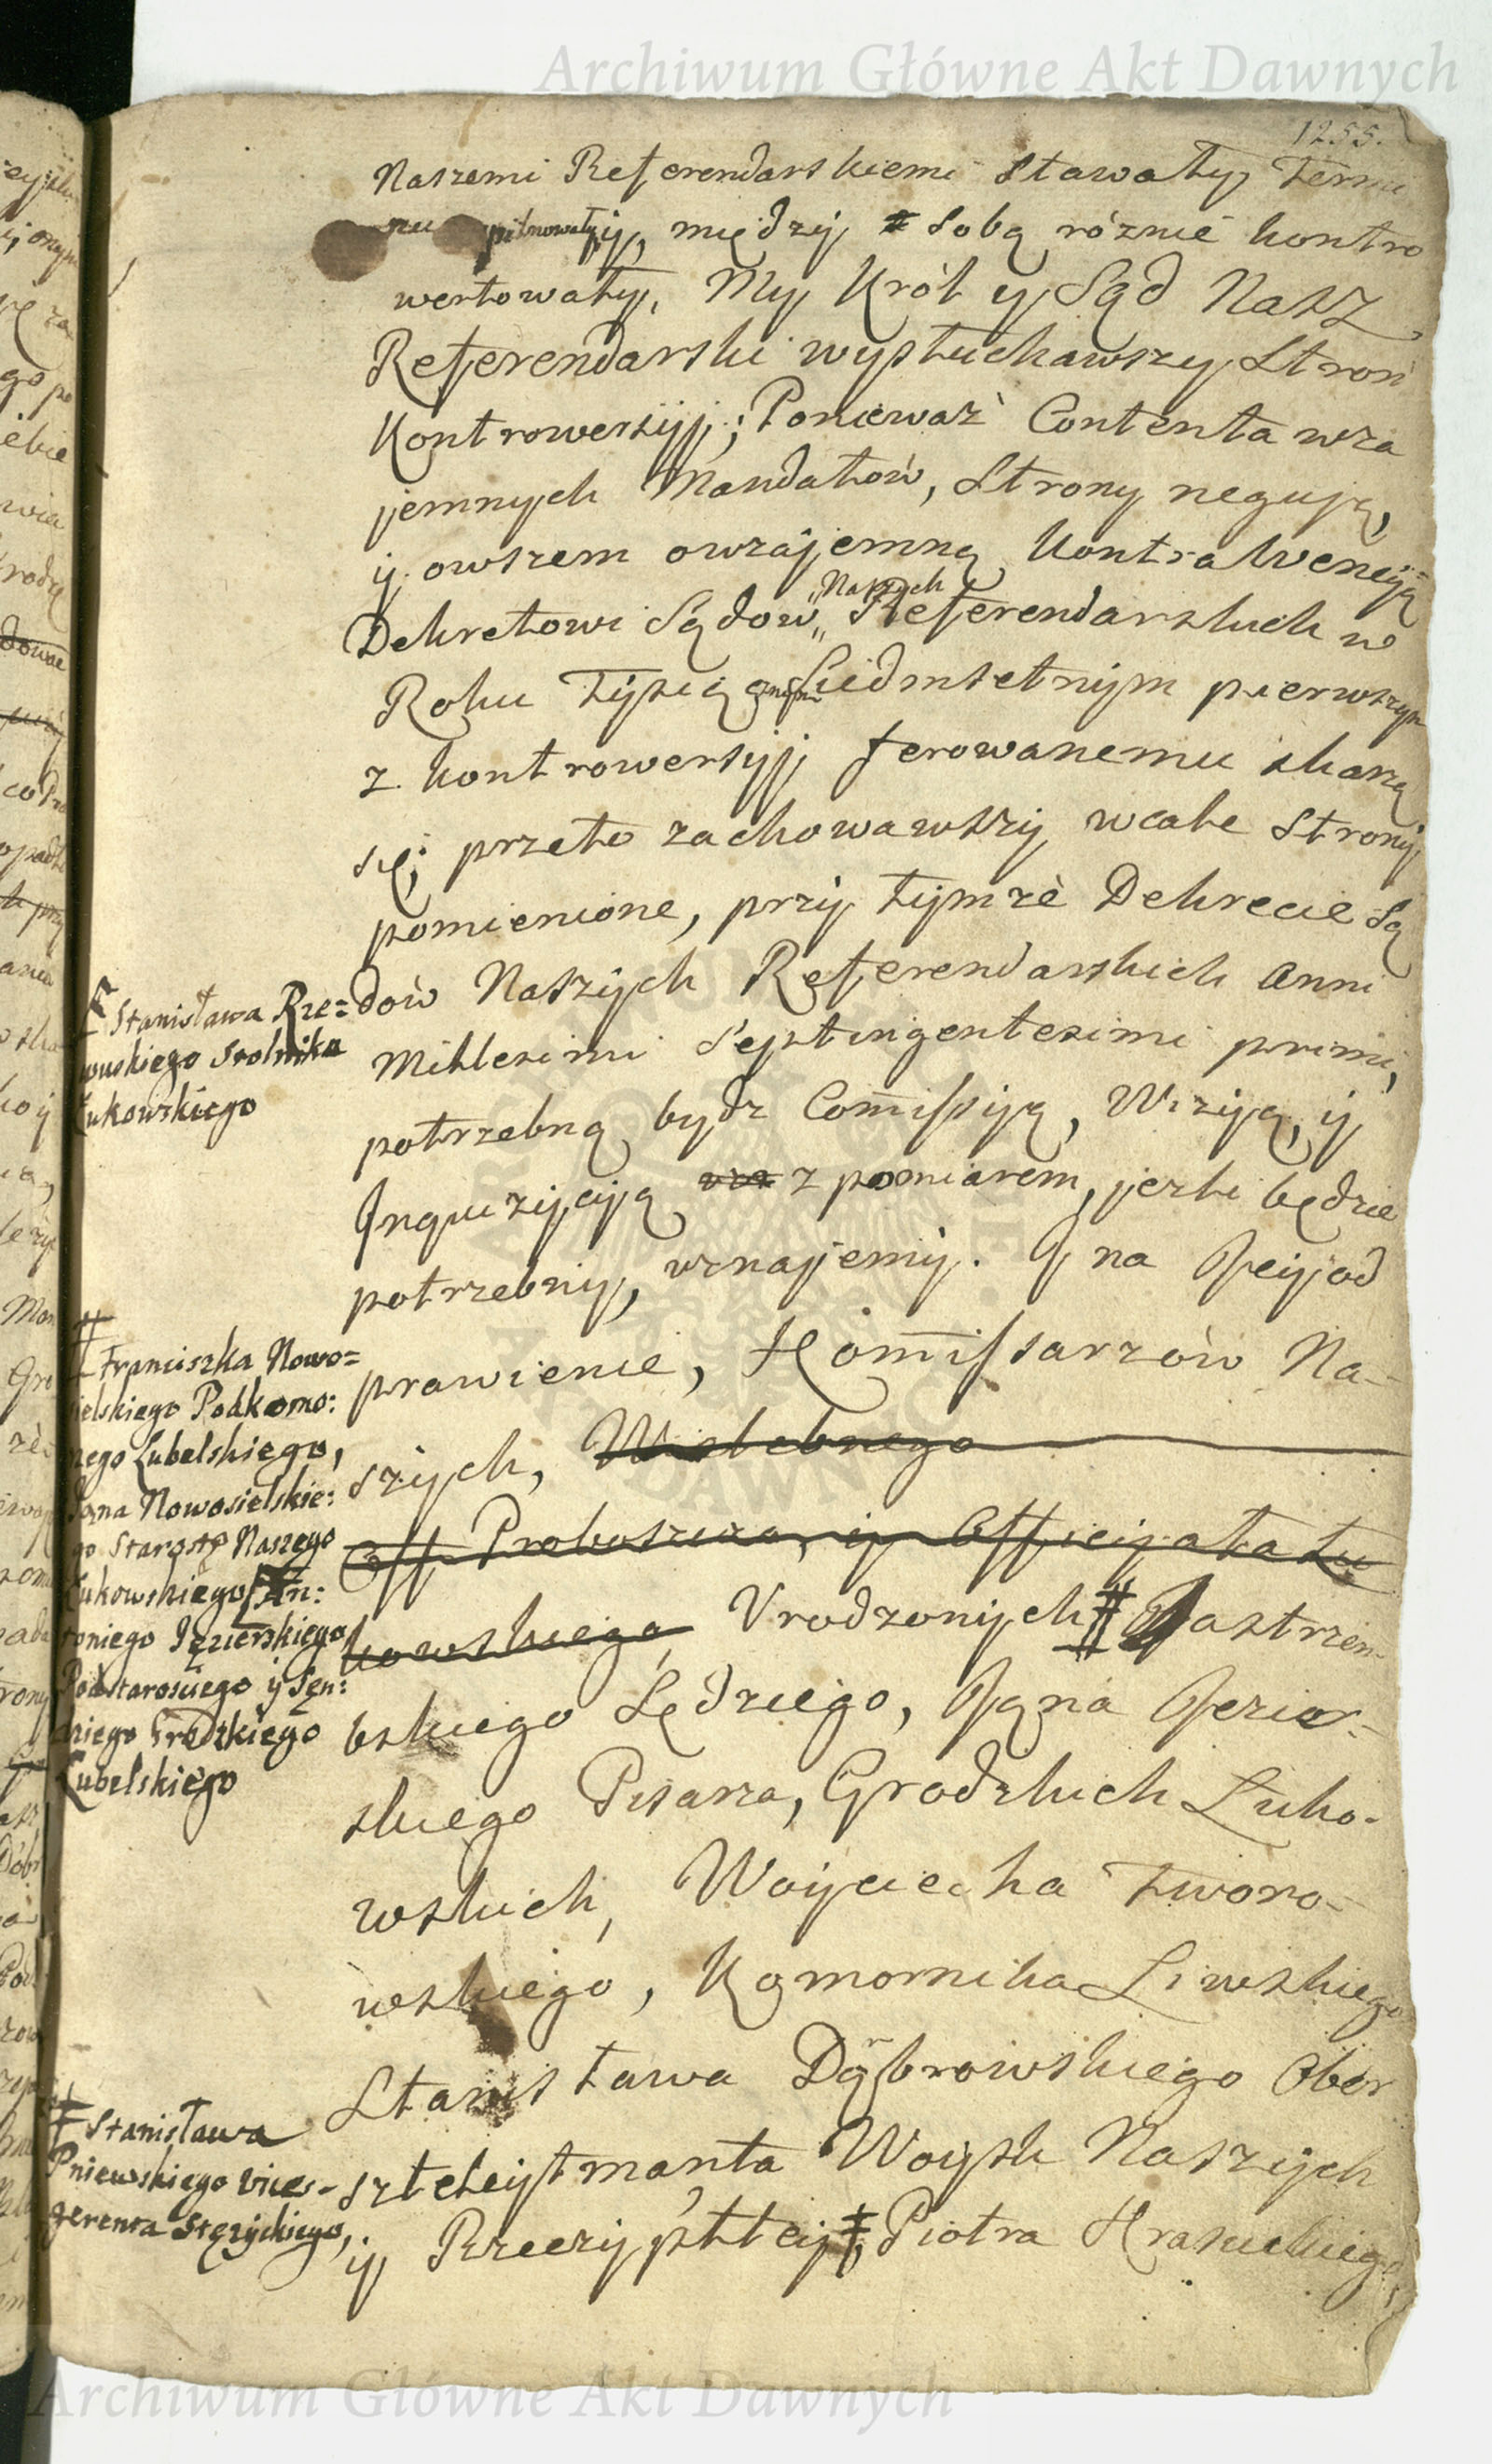 Archiwum Główne Akt Dawnych
1255.
Naszemi Referendarskiemi stawały, Termi
nu pilnowały, y między sobą róznie kontro
wertowały, My Król y Sąd Nasz
Referendarski wysłuchawszy Stron
Kontrowersyji; Poniewaz Contenta wza
jemnych Mandatow, Strony negują,
y owszem owzajemną Kontrawencyją
Dekretowi Sądow Naszych Referendarskich w
Roku Tysiącznym Siedmsetnym pierwszym
z kontrowersyji ferowanemu skarzą
się; przeto zachowawszy wcale Strony
pomienione, przy tymze Dekrecie Są
dow Naszych Referendarskich Anni
Millesimi Septingentesimi primi,
potrzebną bydz Commissyją, Wizyą, y
Inquizycyją z pomiarem, jezli będzie
potrzebny, uznajemy. I na Jey od
prawienie, Kommissarzow Na-
szych, Wielebnego
Off Proboszcza, y Officyała Łu
kowskiego Urodzonych # Jastrzem-
bskiego Sędziego, Jana Jezior-
skiego Pisarza, Grodzkich Łuko-
wskich, Woyciecha Tworo-
wskiego, Komornika Liwskiego
Stanisława Dąbrowskiego Ober
sztleytmanta Woysk Naszych
y Rzeczypltey ‡, Piotra Krasuckiego,
Stanisława Rze=
wuskiego Stolnika
Łukowskiego
# Franciszka Nowo=
sielskiego Podkomo:
rzego Lubelskiego,
Jana Nowosielskie:
go Starosty Naszego
Łukowskiego, An:
toniego Jezierskiego
Podstarosciego y Sęn:
dziego Grodzkiego
Lubelskiego
‡ Stanisława
Pniewskiego Vices-
gerenta Stęzyckiego,
Archiwum Główne Akt Dawnych